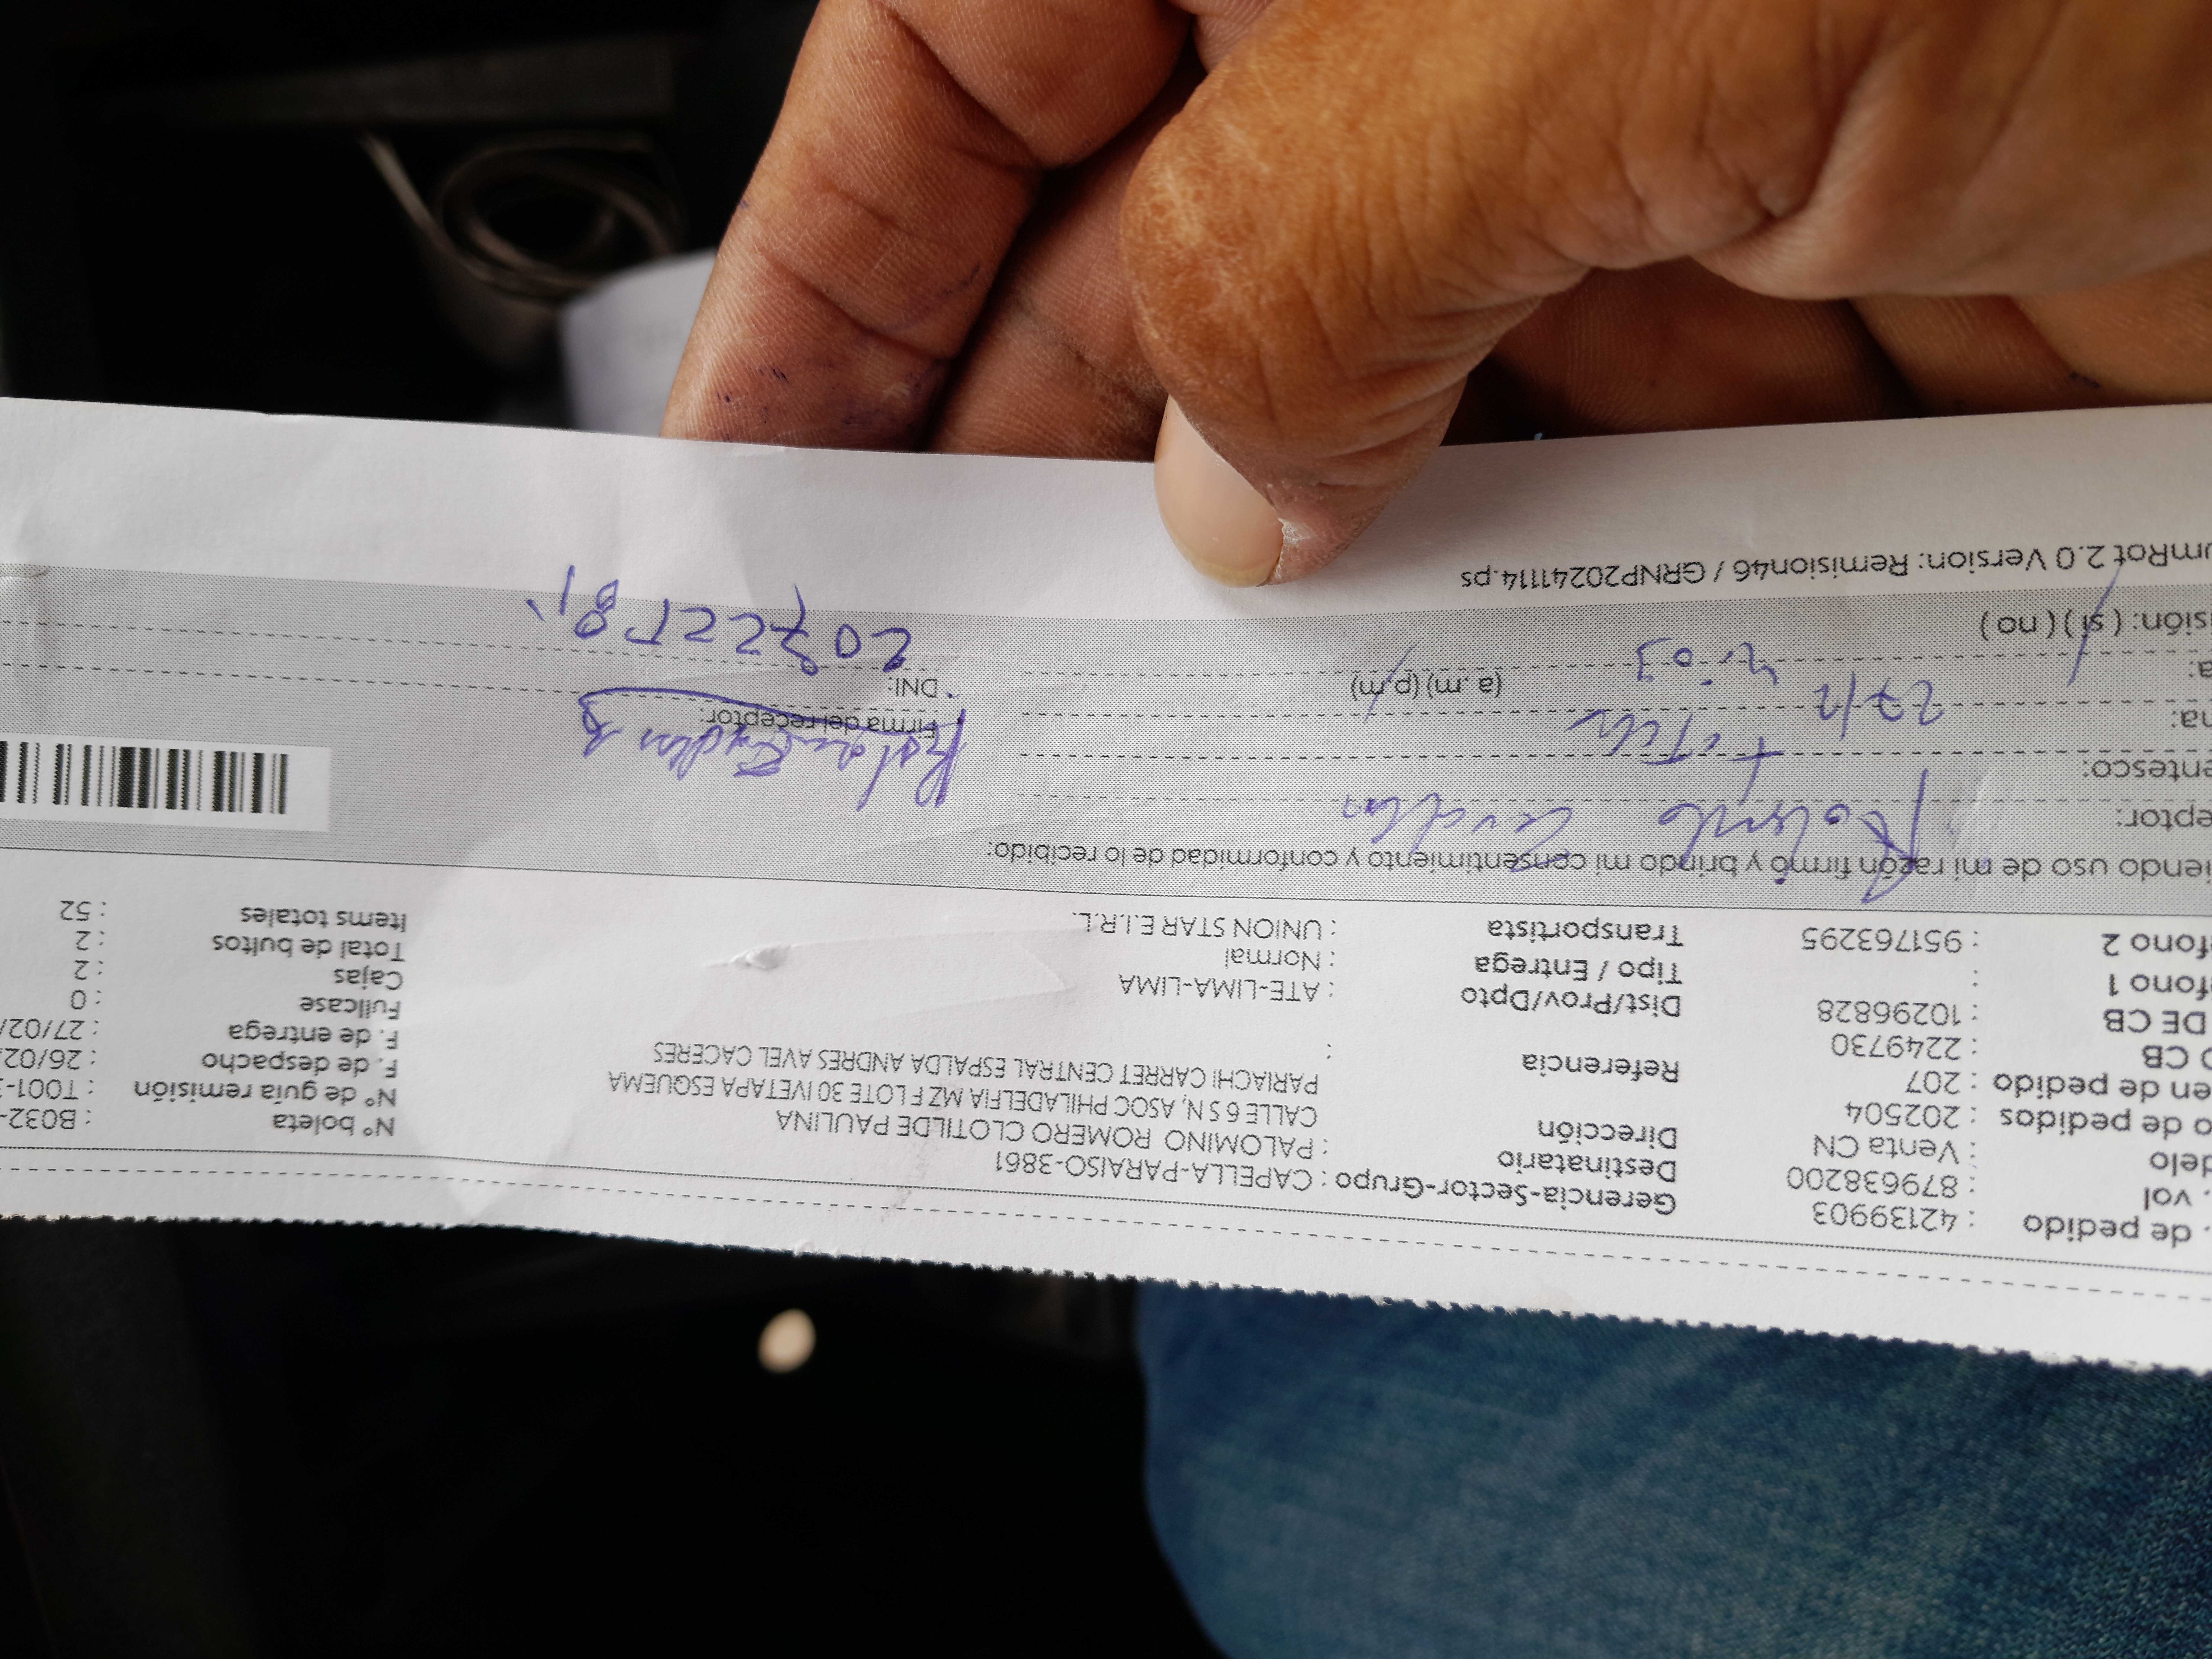 . de pedido : 42139903 Gerencia-Sector-Grupo : CAPELLA-PARAISO-3861 N° boleta : B032-
. vol : 879638200 Destinatario : PALOMINO ROMERO CLOTILDE PAULINA N° de guía remisión : T001-
delo : Venta CN Dirección CALLE 6 S N, ASOC PHILADELFIA MZ F LOTE 30 IVETAPA ESQUEMA F. de despacho : 26/02/
o de pedidos : 202504 PARIACHI CARRET CENTRAL ESPALDA ANDRES AVEL CACERES F. de entrega : 27/02/
en de pedido : 207 Referencia : Fullcase : 0
O CB : 2249730 Dist/Prov/Dpto : ATE-LIMA-LIMA Cajas : 2
DE CB : 10296828 Tipo / Entrega : Normal Total de bultos : 2
éfono 1 : Transportista : UNION STAR E.I.R.L. Items totales : 52
éfono 2 : 951763295
iendo uso de mi razón firmo y brindo mi consentimiento y conformidad de lo recibido:
eptor: Rolando
entesco: Firma del receptor:
na: 27/2
a: 2:03 (a.m) (p.m) DNI: 
isión: (sí) (no)
umRot 2.0 Version: Remision46 / GRNP20241114.ps